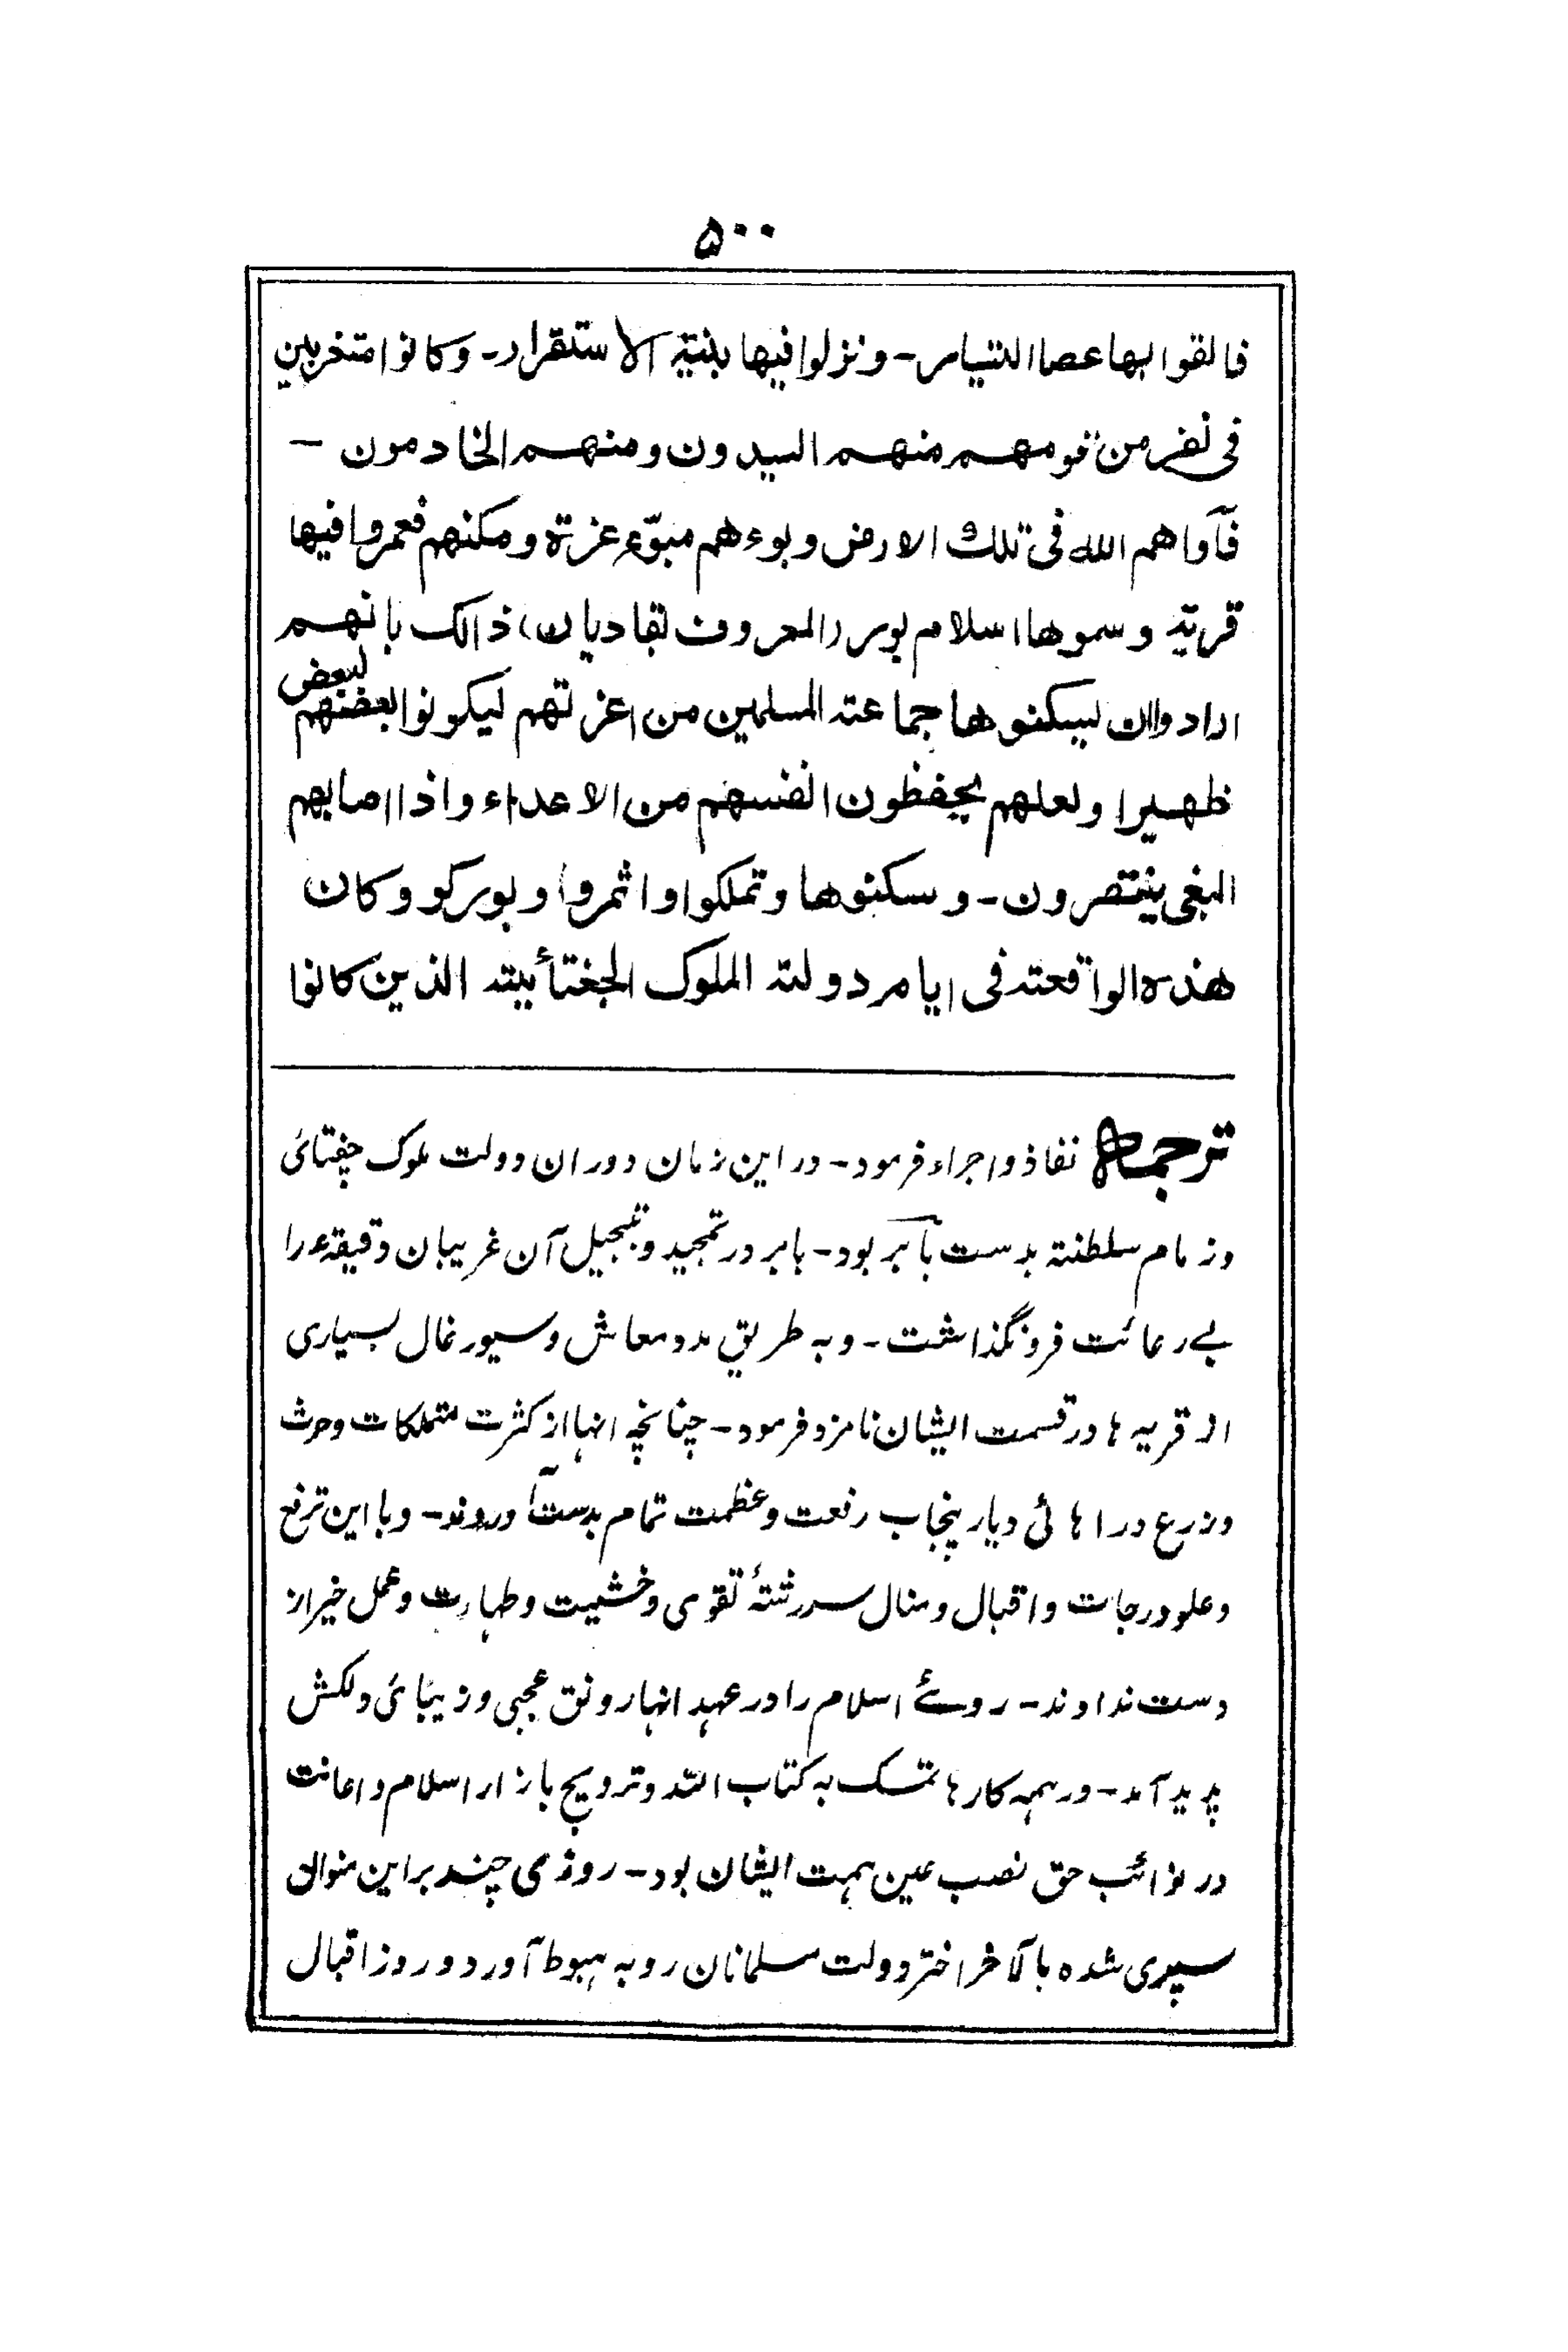 ۵۰۰
فالقوا بها عصا التسيار۔ ونزلوا فيها بنية الاستقرار۔ وكانوا متغربين
فى نفر من قومهم منهم السيدون ومنهم الخادمون —
فآواهم الله فى تلك الارض وبوءهم مبوّء عزة ومكنهم فعمروا فيها
قرية وسموها اسلام پور (المعروف بقاديان) ذالك بانهم
ارادوا ان يسكنوها جماعة المسلمين من اعزتهم ليكونوا بعضهم لبعض
ظهيرا ولعلهم يحفظون انفسهم من الاعداء واذا اصابهم
البغى ينتصرون۔ وسكنوها وتملكوا واثمروا وبوركو وكان
هذه الواقعة فى ايام دولة الملوك الجغتأيية الذين كانوا
ترجمه نفاذ و اجراء فرمود۔ در این زمان دوران دولت ملوک چغتائی
و زمام سلطنة بدست بابر بود۔ بابر در تمجید و تبجیل آن غریبان دقیقہء را
بے رعائت فرونگذاشت۔ و بہ طریق مدد معاش و سیور غال بسیاری
از قریہ ہا در قسمت ایشان نامزد فرمود۔ چنانچہ انہا از کثرت متملکات و حرث
و زرع در اہائی دیار پنجاب رفعت و عظمت تمام بدست آوردند۔ و با این ترفع
و علو درجات و اقبال و منال سررشتۂ تقوی و خشیت و طہارت و عمل خیر از
دست ندادند۔ روئے اسلام را در عہد انہا رونق عجبی و زیبائی دلکش
پدید آمد۔ در ہمہ کارہا تمسک بہ کتاب اللہ و ترویج بازار اسلام و اعانت
در نوائب حق نصب عین ہمت ایشان بود۔ روزی چند بر این منوال
سپری شدہ بالآخر اختر دولت مسلمانان رو بہ ہبوط آورد و روز اقبال